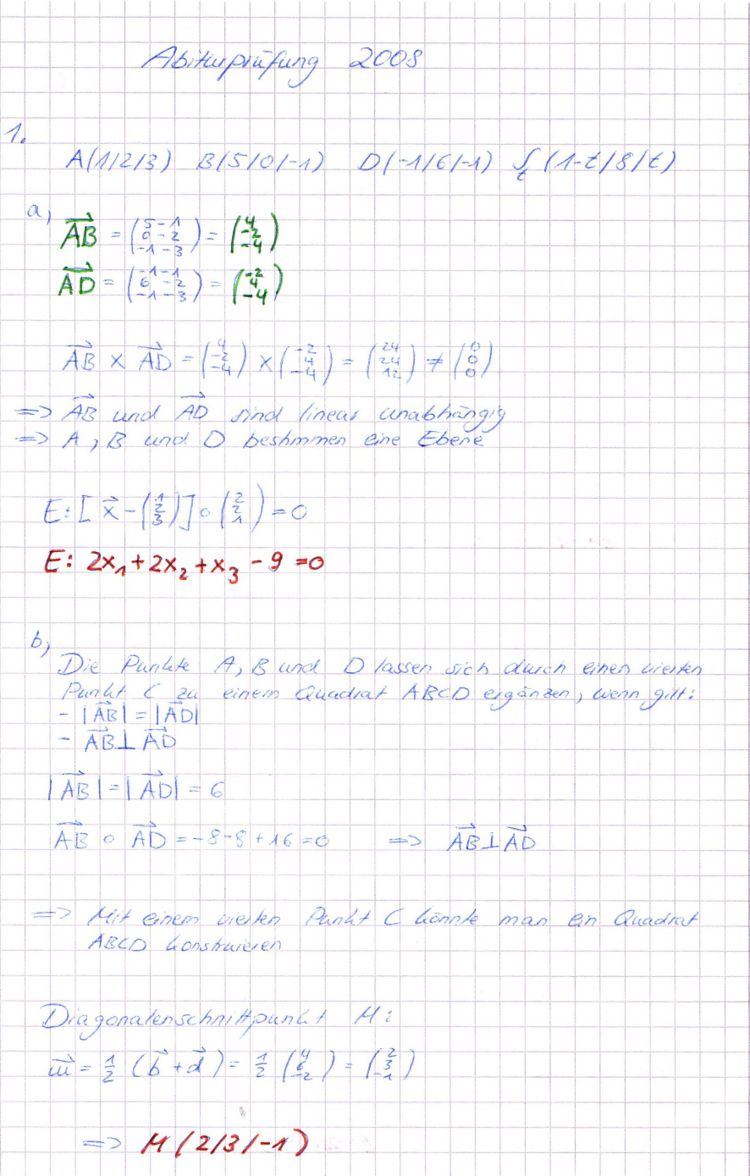 Abiturprüfung 2008
1.
A(1/2/3) B(5/0/-1) D(-1/6/-1) S_t(1-t/8/t)
a) \vec{AB} = \begin{pmatrix} 5-1 \\ 0-2 \\ -1-3 \end{pmatrix} = \begin{pmatrix} 4 \\ -2 \\ -4 \end{pmatrix}
\vec{AD} = \begin{pmatrix} -1-1 \\ 6-2 \\ -1-3 \end{pmatrix} = \begin{pmatrix} -2 \\ 4 \\ -4 \end{pmatrix}
\vec{AB} × \vec{AD} = \begin{pmatrix} 4 \\ -2 \\ -4 \end{pmatrix} × \begin{pmatrix} -2 \\ 4 \\ -4 \end{pmatrix} = \begin{pmatrix} 24 \\ 24 \\ 12 \end{pmatrix} ≠ \begin{pmatrix} 0 \\ 0 \\ 0 \end{pmatrix}
=> \vec{AB} und \vec{AD} sind linear unabhängig
=> A, B und D bestimmen eine Ebene
E: [\vec{x} - \begin{pmatrix} 1 \\ 2 \\ 3 \end{pmatrix}] ∘ \begin{pmatrix} 2 \\ 2 \\ 1 \end{pmatrix} = 0
E: 2x₁ + 2x₂ + x₃ - 9 = 0
b)
Die Punkte A, B und D lassen sich durch einen vierten
Punkt C zu einem Quadrat ABCD ergänzen, wenn gilt:
- |\vec{AB}| = |\vec{AD}|
- \vec{AB} ⊥ \vec{AD}
|\vec{AB}| = |\vec{AD}| = 6
\vec{AB} ∘ \vec{AD} = -8-8+16 = 0 => \vec{AB} ⊥ \vec{AD}
=> Mit einem vierten Punkt C könnte man ein Quadrat
ABCD konstruieren
Diagonalenschnittpunkt M:
\vec{m} = ½ (\vec{b} + \vec{d}) = ½ \begin{pmatrix} 4 \\ 6 \\ -2 \end{pmatrix} = \begin{pmatrix} 2 \\ 3 \\ -1 \end{pmatrix}
=> M(2/3/-1)